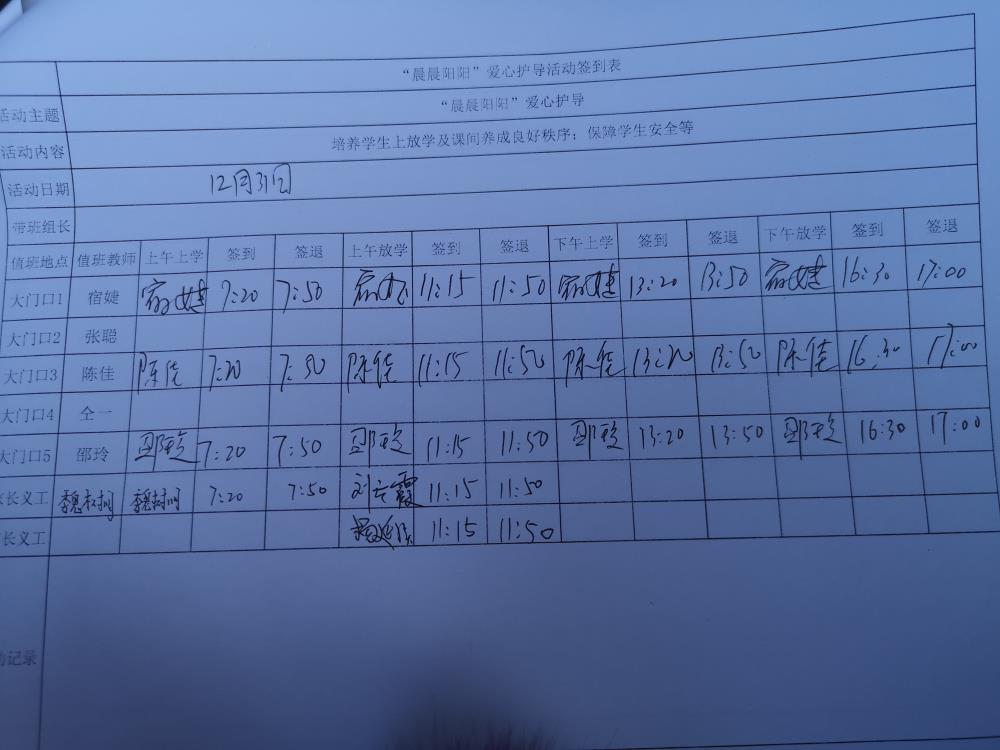 “晨晨阳阳”爱心护导活动签到表
活动主题 “晨晨阳阳”爱心护导
活动内容 培养学生上放学及课间养成良好秩序；保障学生安全等
活动日期 12月31日
带班组长
值班地点 值班教师 上午上学 签到 签退 上午放学 签到 签退 下午上学 签到 签退 下午放学 签到 签退
大门口1 宿婕 宿婕 7:20 7:50 宿婕 11:15 11:50 宿婕 13:20 13:50 宿婕 16:30 17:00
大门口2 张聪
大门口3 陈佳 陈佳 7:20 7:50 陈佳 11:15 11:50 陈佳 13:20 13:50 陈佳 16:30 17:00
大门口4 仝一
大门口5 邵玲 邵玲 7:20 7:50 邵玲 11:15 11:50 邵玲 13:20 13:50 邵玲 16:30 17:00
长义工 7:20 7:50 11:15 11:50
长义工 11:15 11:50
记录